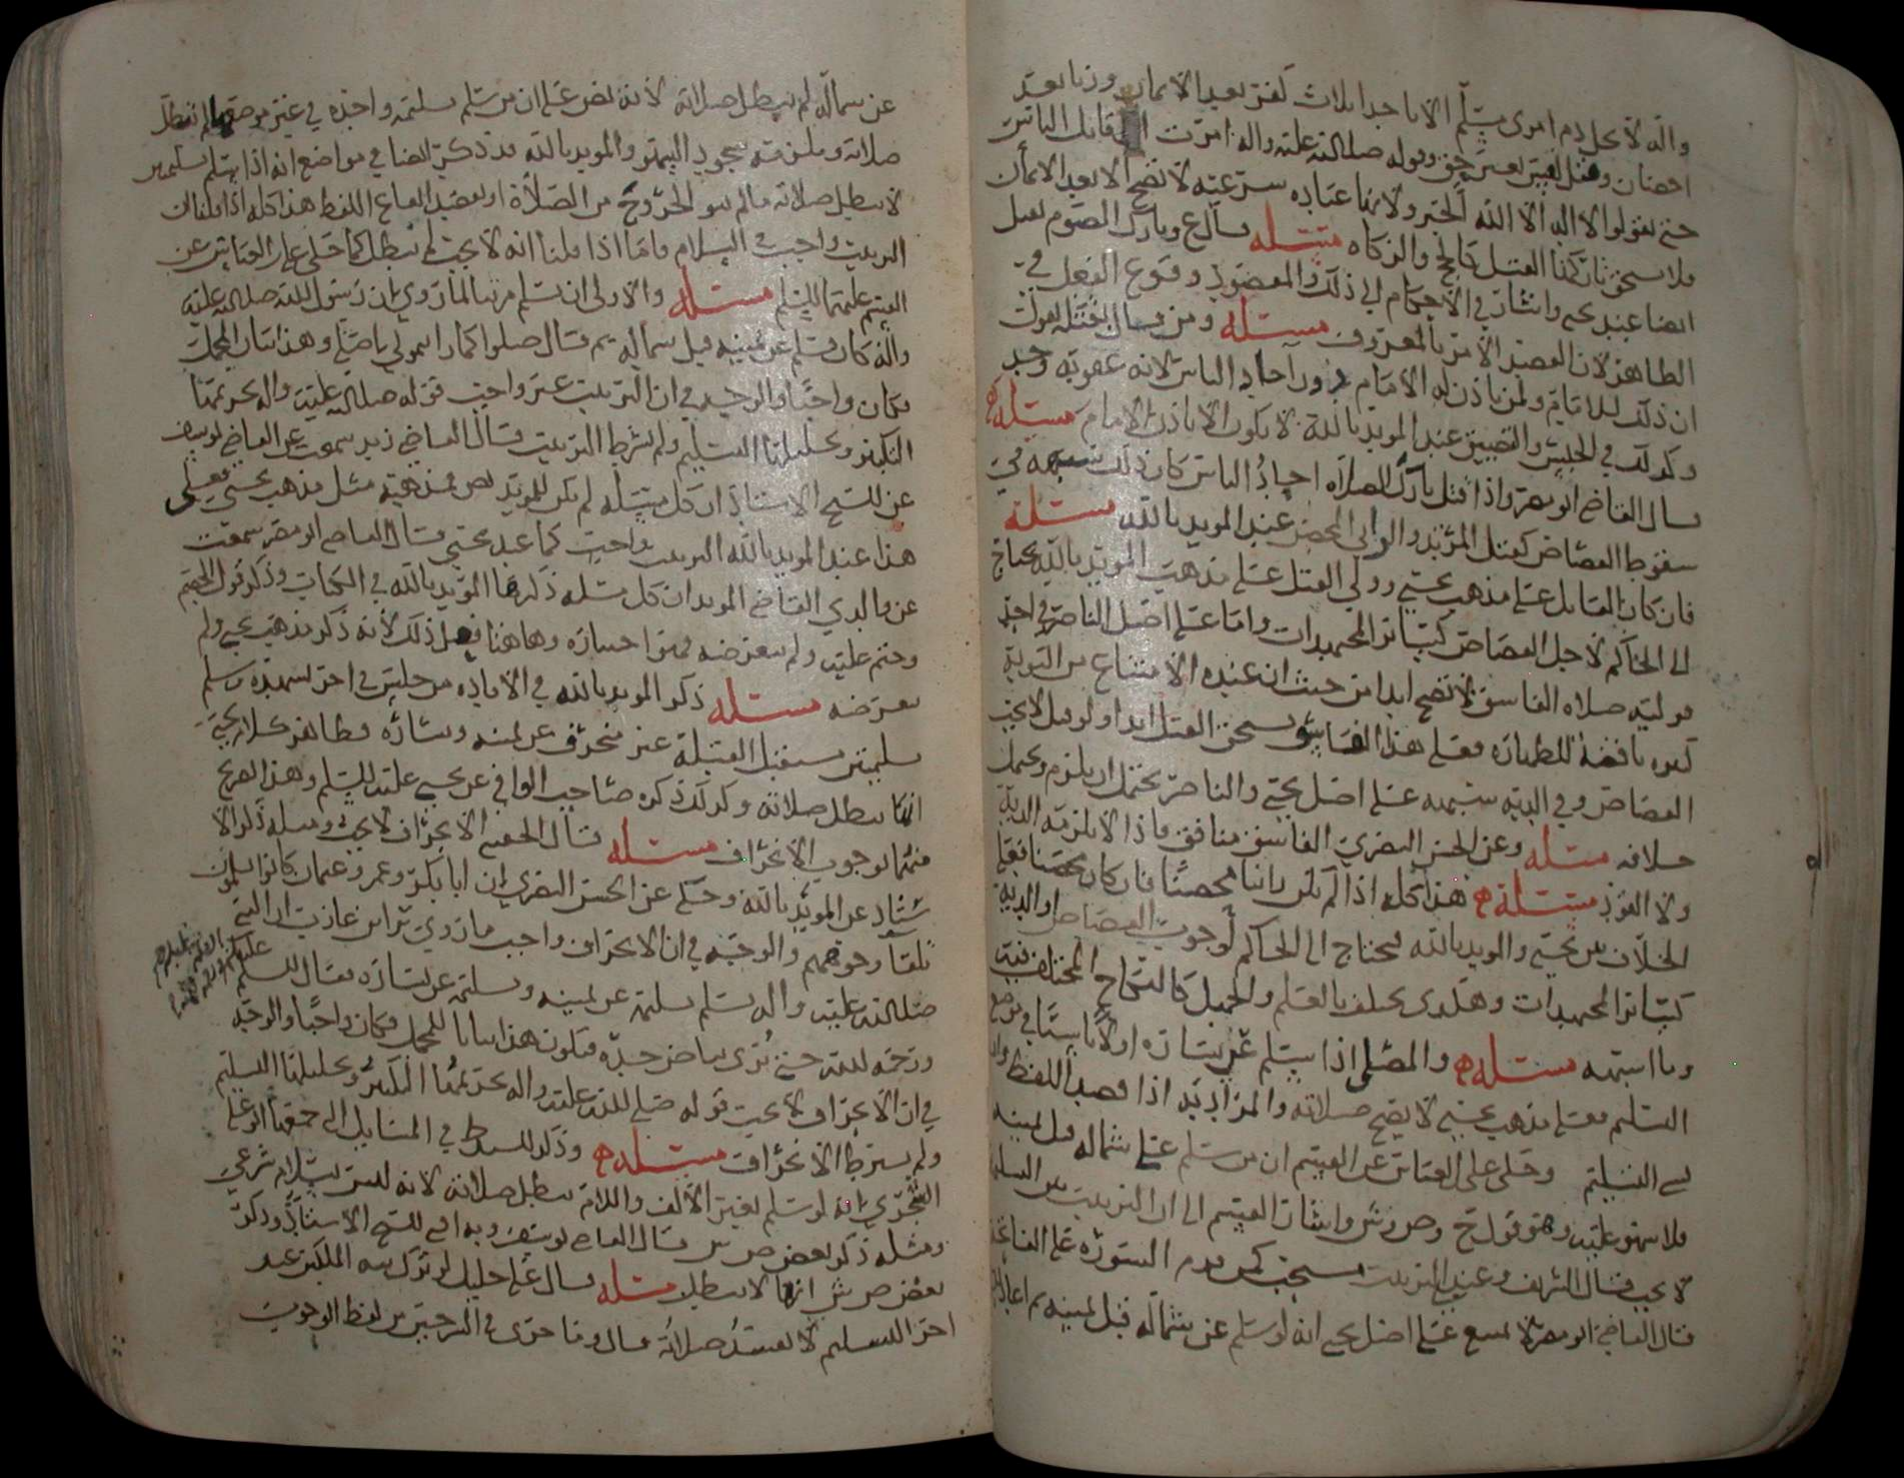 واله لا يحل دم امرئ مسلم الا باحدى ثلاث كفر بعد الايمان وزنا بعد
احصان وقتل نفس بغير حق وقوله صلى الله عليه واله امرت ان اقاتل الناس
حتى يقولوا لا اله الا الله الخبر ولانها عبادة شرعية لا تصح الا بعد الايمان
فلا يستحق بتركها القتل كالحج والزكاة مسئله قال ع وتارك الصوم يقتل
ايضا عند يحيى واشار في الاحكام الى ذلك والمقصود وقوع الفعل في
الظاهر لان القصد الامر بالمعروف مسئله ومن قال بقتله يقول
ان ذلك للامام ولمن ياذن له الامام دون احاد الناس لانه عقوبة وحد
وكذلك في الحبس والتضييق عند المويد بالله لا يكون الا باذن الامام مسئله
قال القاضي ابو مضر واذا قتل تارك الصلاه احاد الناس كان ذلك شبهه في
سقوط القصاص كقتل المرتد والزاني المحصن عند المويد بالله مسئله
فان كان القاتل على مذهب يحيى وولي القتل على مذهب المويد بالله يحتاج
الى الحاكم لاجل القصاص كسائر المجتهدات واما على اصل الناصر في احد
قوليه صلاه الفاسق لا تصح ابدا من حيث ان عنده الامتناع من التوبة
كبيره ناقضة للطهاره فعلى هذا الفاسق يستحق القتل ابدا ولو قيل لا يجب
القصاص وفي الديه شبهه على اصل يحيى والناصر يحتمل ان يلزم ويحتمل
خلافه مسئله وعن الحسن البصري الفاسق منافق فاذا لا يلزمه الدية
ولا القود مسئله هذا كله اذا لم يكن زانيا محصنا فان كان محصنا فعلى
الخلاف بين يحيى والمويد بالله يحتاج الى الحاكم لوجوب القصاص او الدية
كسائر المجتهدات وهكذى يختلف بالعلم والجهل كالنكاح المختلف فيه
وما اشبهه مسئله والمصلي اذا سلم عن يساره اولا ناسيا في موضع
التسليم فعلى مذهب يحيى لا يصح صلاته والمراد به اذا قصد اللفظ
الى التسليم وحكى علي بن العباس عن القسم ان من سلم على شماله قبل يمينه
فلا سهو عليه وهو قول ح وص وش واشار القسم الى ان الترتيب بين التسليم
لا يجب فقال الشريف وعندي الترتيب مستحب كمن قدم السوره على الفاتحة
قال القاضي ابو مضر لا يمتنع على اصل يحيى انه لو سلم عن شماله قبل يمينه ثم اعاد
عن شماله لم يبطل صلاته لانه نص على ان من سلم تسليمة واحدة في غير موضعها لم تبطل
صلاته ويلزمه سجود السهو والمويد بالله قد ذكر ايضا في مواضع انه اذا سلم تسليمتين
لا يبطل صلاته ما لم ينو الخروج من الصلاة او يقصد ايقاع اللفظ هذا كله اذا قلنا ان
الترتيب واجب في السلام فاما اذا قلنا انه لا يجب لم تبطل كما حكى علي بن العباس عن
القسم عليهما السلم مسئله والاولى ان يسلم مرتبا لما روي ان رسول الله صلى الله عليه
واله كان يسلم عن يمينه قبل شماله ثم قال صلوا كما رايتموني اصلي وهذا بيان المجمل
فكان واجبا والوجه في ان الترتيب غير واجب قوله صلى الله عليه واله تحريمها
التكبير وتحليلها التسليم ولم يشرط الترتيب قال القاضي زيد سمعت عن القاضي يوسف
عن الشيخ الاستاذ ان كل مسئله لم يكن للمويد نص فمذهبه مثل مذهب يحيى فعلى
هذا عند المويد بالله الترتيب واجب كما عند يحيى قال القاضي ابو مضر سمعت
عن والدي القاضي المويد ان كل مسئله ذكرها المويد بالله في الكتاب وذكر قول القسم
وختم عليه ولم يتعرضه فهو اختياره وهاهنا فعل ذلك لانه ذكر مذهب يحيى ولم
يعرضه مسئله ذكر المويد بالله في الافاده من جلس في اخر تشهده وسلم
تسليمتين مستقبل القبلة غير منحرف عن يمينه ويساره فظاهر كلام يحيى
انها تبطل صلاته وكذلك ذكره صاحب الوافي عن يحيى عليه السلم وهذا تصريح
منهما بوجوب الانحراف مسئله قال الحقيني الانحراف لا يجب ومثله ذكر الا
ستاذ عن المويد بالله وحكى عن الحسن البصري ان ابا بكر وعمر وعثمان كانوا يسلمون
تلقا وجوههم والوجه في ان الانحراف واجب ما روي براء بن عازب ان النبي
صلى الله عليه واله سلم تسليمة عن يمينه وتسليمة عن يساره فقال السلم
عليكم ورحمة الله
ورحمة الله حتى يرى بياض خده فيكون هذا بيانا للمجمل فكان واجبا والوجه
في ان الانحراف لا يجب قوله صلى الله عليه واله تحريمها التكبير وتحليلها التسليم
ولم يشترط الانحراف مسئله وذكر السيد ط في المسايل الى جمعها ابو علي
الشجري انه لو سلم بغير الالف واللام تبطل صلاته لانه ليس بسلام شرعي
ومثله ذكر بعض ص ش قال القاضي يوسف وبه افتى الشيخ الاستاذ وذكر
بعض ص ش انها لا تبطل مسئله قال علي خليل لو ترك نية الملكين عند
اخر التسليم لا تفسد صلاته قال وما جرى في الشرحين من لفظ الوجوب